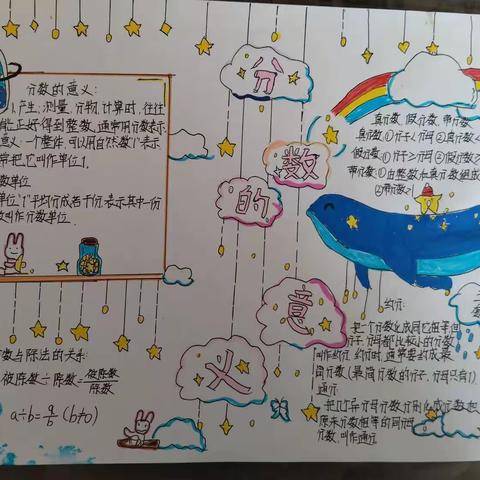 分数的意义
分数的意义:
1.产生:测量、分物、计算时,往往
能正好得到整数,通常用分数表示.
意义:一个整体,可以用自然数1表示
常把它叫作单位1.
数单位
单位"1"平均分成若干份,表示其中一份
数叫作分数单位
数与除法的关系:
被除数÷除数=被除数/除数
a÷b=a/b (b≠0)
真分数 假分数 带分数
真分数:①分子<分母②真分数<
假分数:①分子≥分母②假分数≥
带分数:①由整数和真分数组成
②带分数>1
约分:
把一个分数化成同它相等但
分子、分母都比较小的分数
叫作约分.约分时,通常要约成最
简分数(最简分数的分子、分母只有1)
通分:
把几个异分母分数分别化成分数和
原来分数相等的同分母
分数,叫作通分